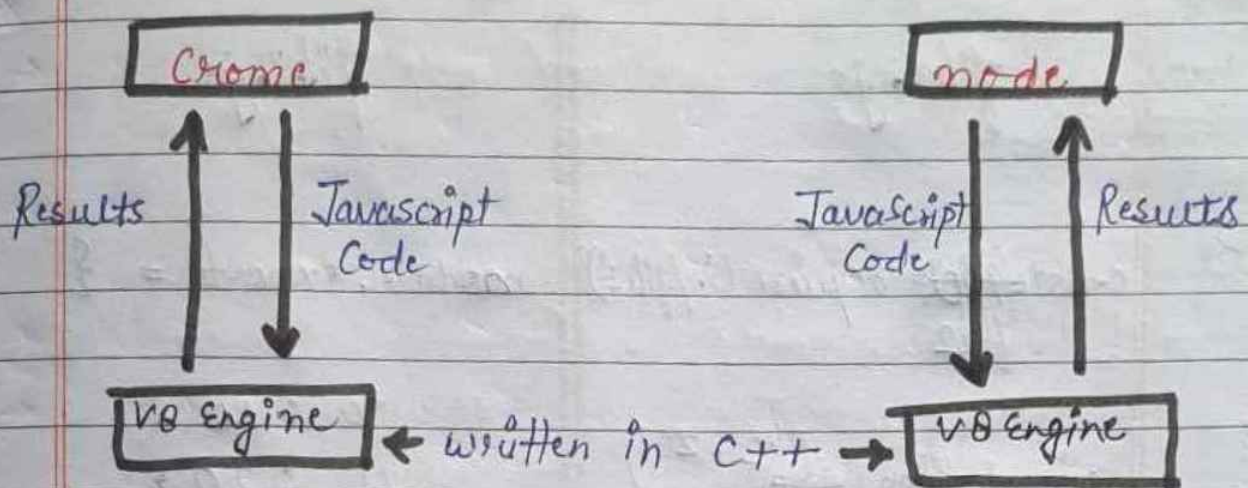 Crome
node
Results
Javascript
Code
Javascript
Code
Results
V8 Engine
written in C++
V8 Engine